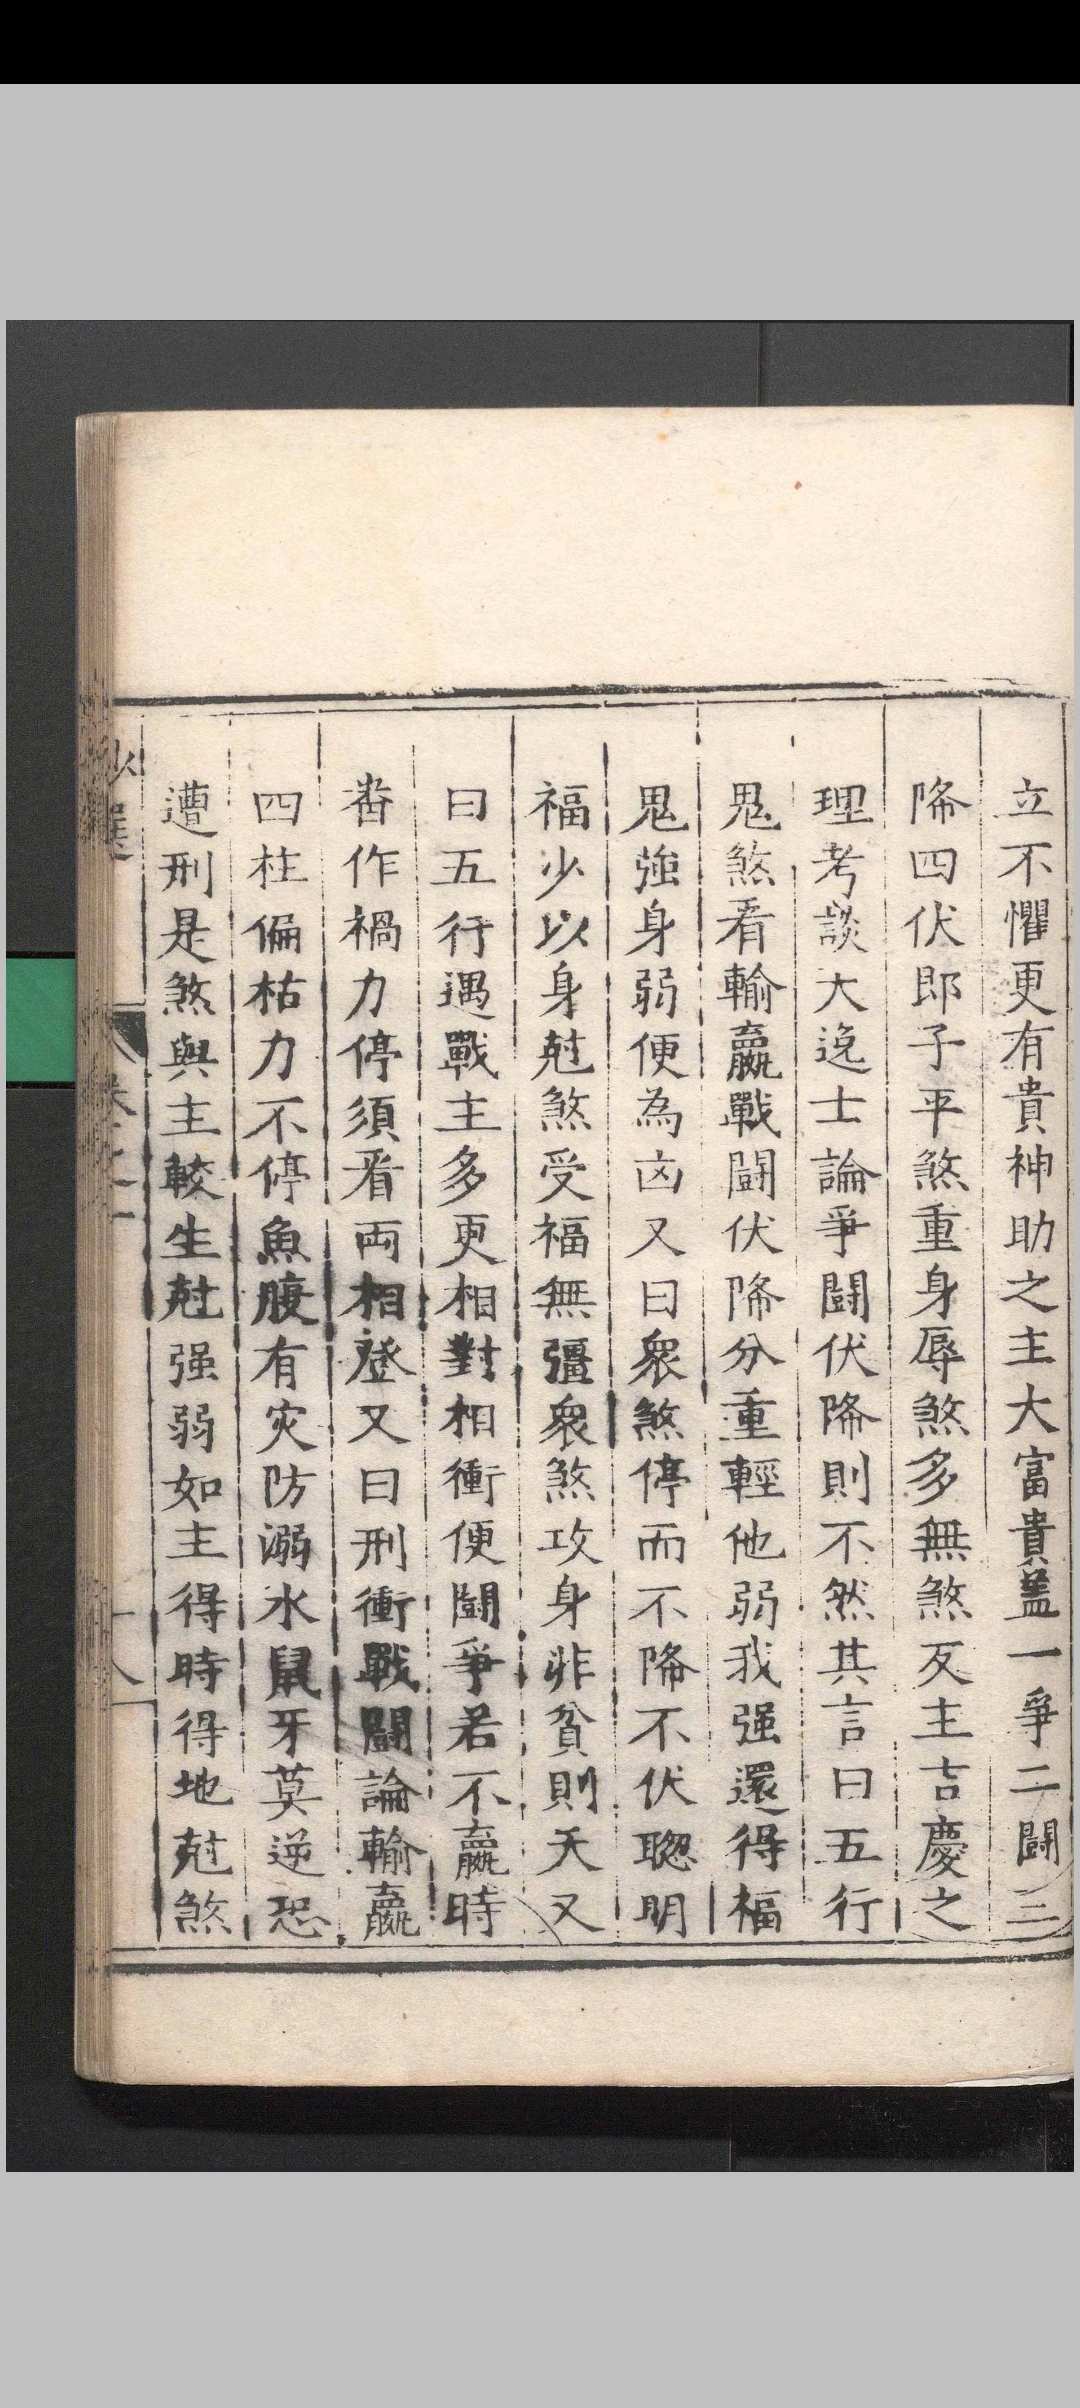 立不懼更有貴神助之主大富貴蓋一爭二闘三
降四伏郎子平煞重身辱煞多無煞反主吉慶之
理考談大逸士論爭闘伏降則不然其言曰五行
鬼煞看輸贏戰闘伏降分重輕他弱我强還得福
鬼強身弱便為凶又曰衆煞停而不降不伏聰明
福少以身尅煞受福無彊衆煞攻身非貧則夭又
曰五行遇戰主多更相對相衝便闘爭若不贏時
畨作禍力停須看両相登又曰刑衝戰闘論輸贏
四柱偏枯力不停魚腹有灾防溺水鼠牙莫逆恐
遭刑是煞與主較生尅强弱如主得時得地尅煞